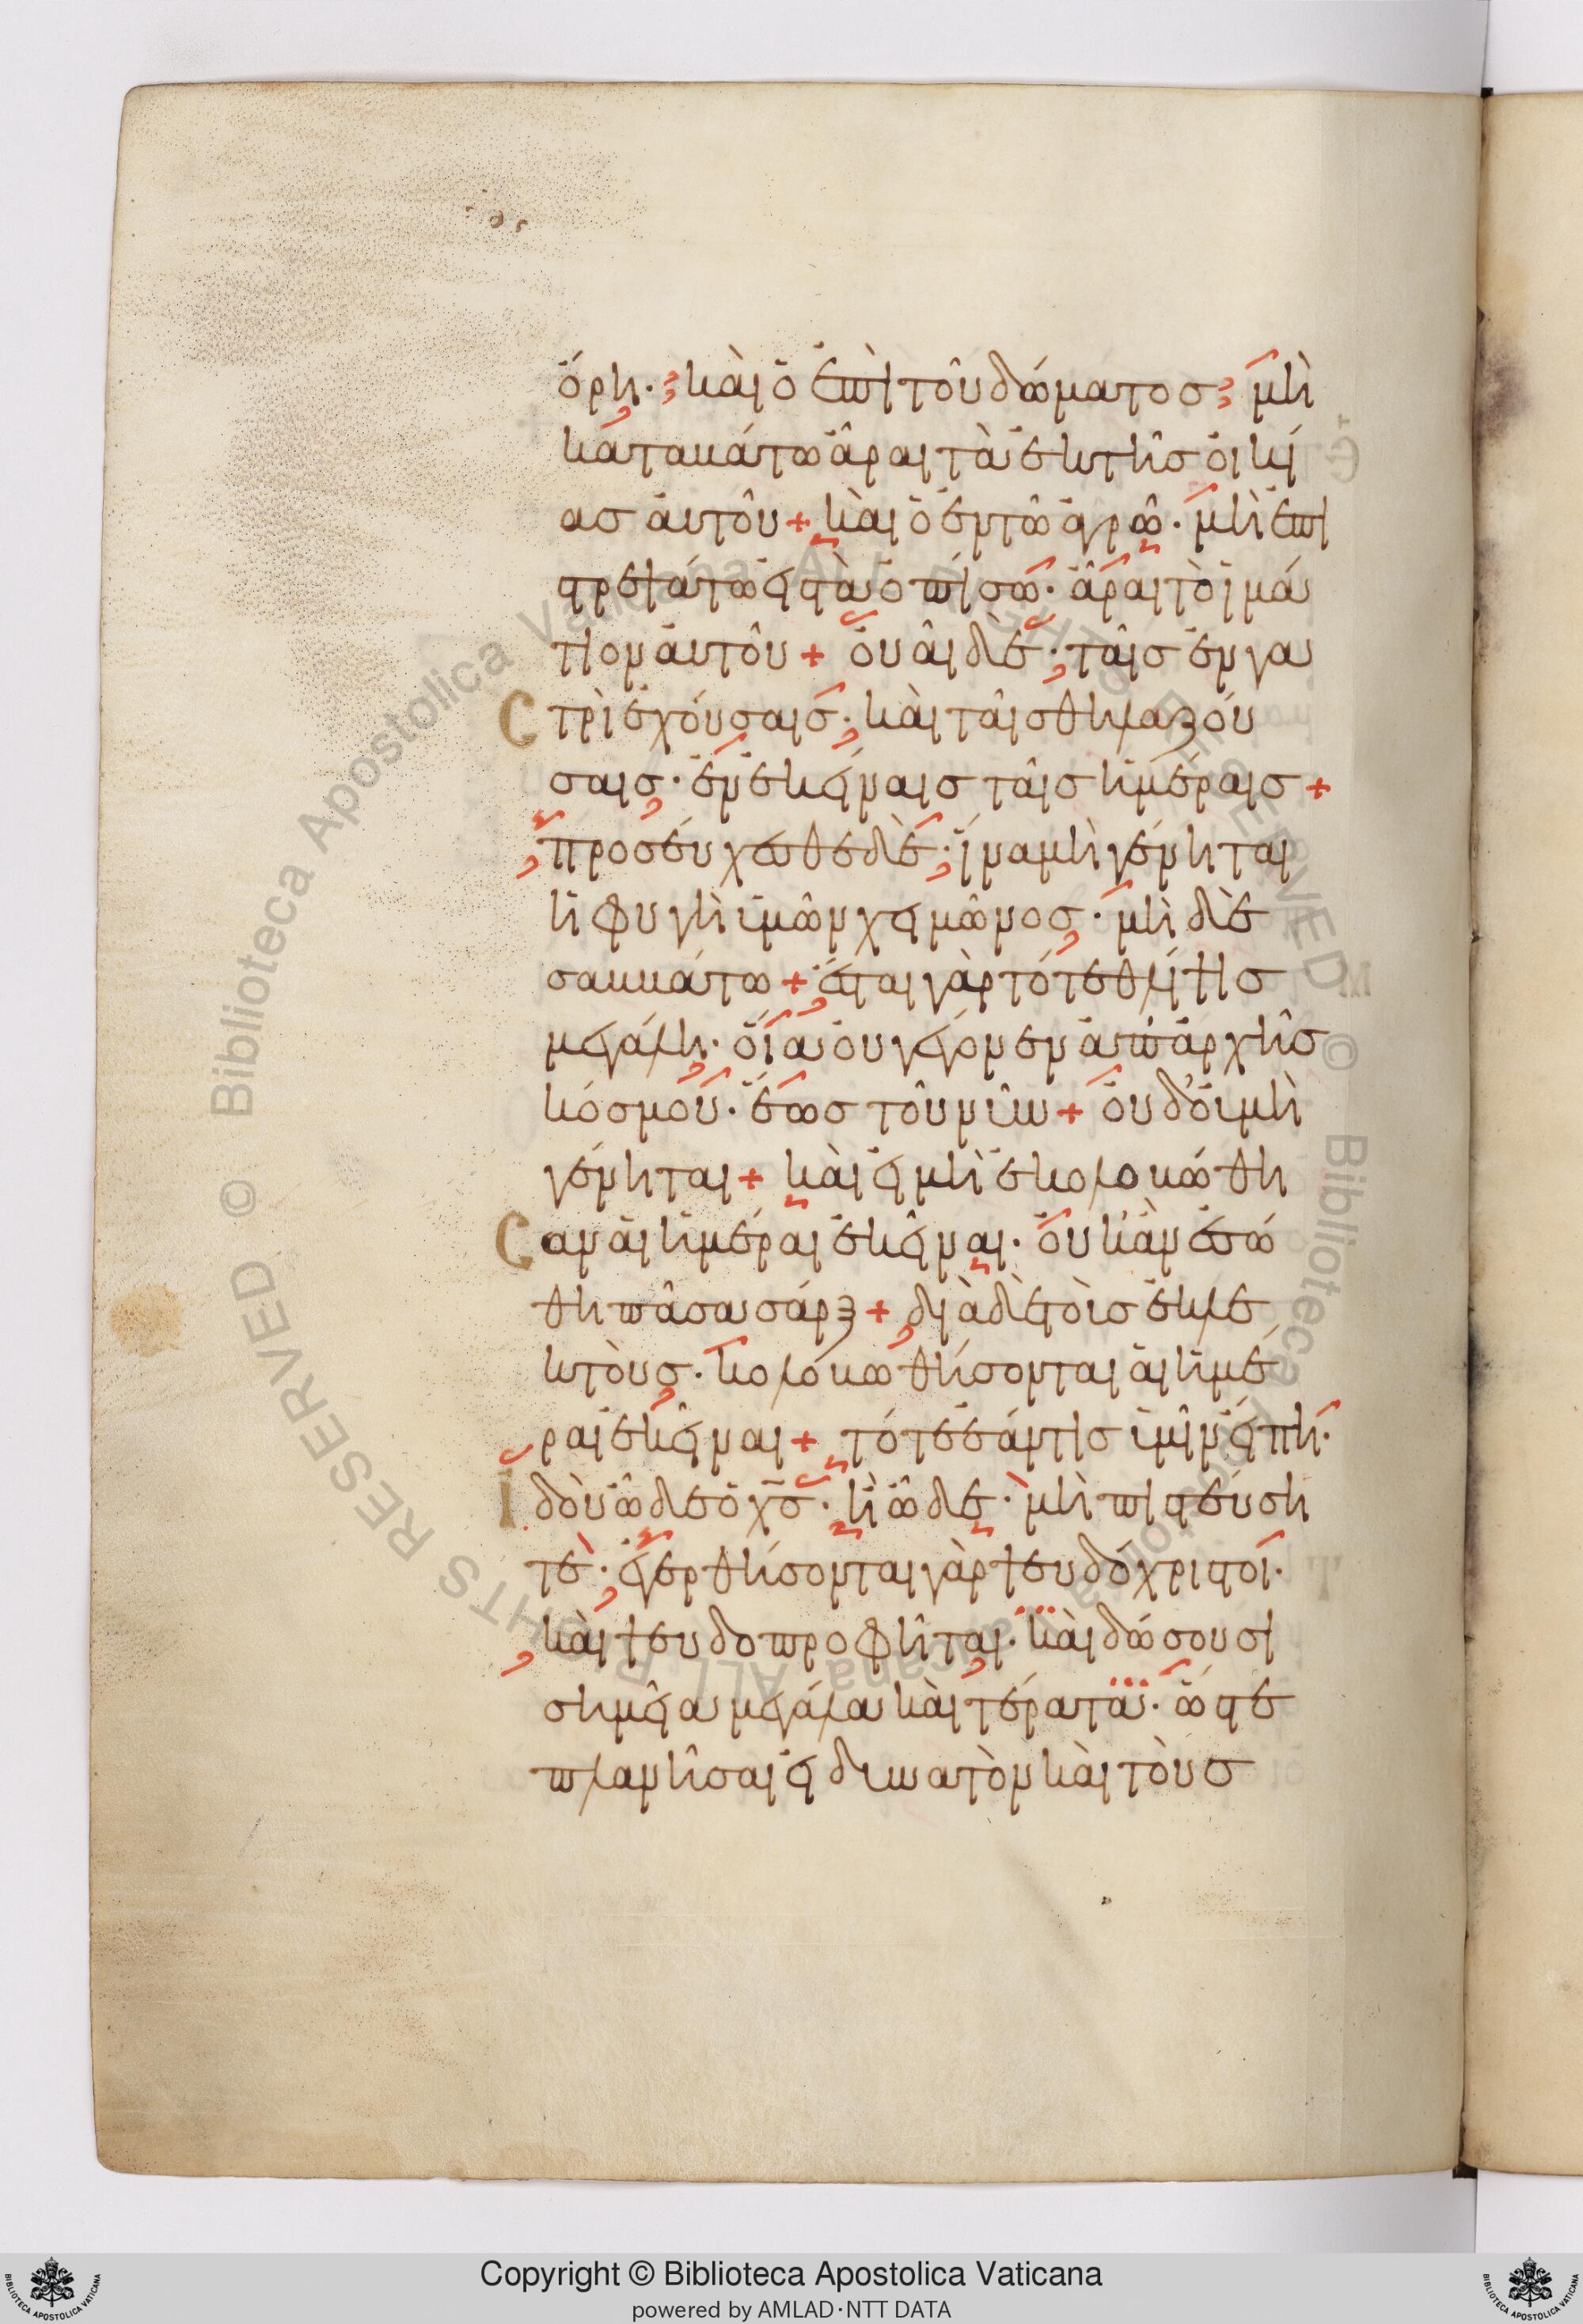 ὄρη· καὶ ὁ ἐπὶ τοῦ δώματος μὴ
κάτακάτω ἆραι τὰ ἐκ τῆς οἰκί
ας αὐτοῦ + καὶ ὁ ἐν τῶ ἀγρῶ· μὴ ἐπι
στρεψάτω εἰς τὰ ὀπίσω· ἆραι τὸ ἱμά
τιον αὐτοῦ + οὐαὶ δὲ· ταῖς ἐν γα
στρὶ ἐχούσαις· καὶ ταῖς θηλαζού
σαις· ἐν ἐκείναις ταῖς ἡμέραις +
προσεύχεσθε δὲ· ἵνα μὴ γένηται
ἡ φυγὴ ὑμῶν χειμῶνος· μὴ δὲ
σακκάτω + ἔσται γὰρ τότε θλίψις
μεγάλη· οἵα οὐ γέγονεν ἀπ' ἀρχῆς
κόσμου· ἕως τοῦ νῦν + οὐδ' οὐ μὴ
γένηται + καὶ εἰ μὴ ἐκολοκώθη
σαν αἱ ἡμέραι ἐκεῖναι· οὐκ ἂν ἐσώ
θη πᾶσα σάρξ + διὰ δὲ τοὺς ἐκλε
κτοὺς· κολοκωθήσονται αἱ ἡμέ
ραι ἐκεῖναι + τότε ἐάν τις ὑμῖν εἴπη·
Ἰδοὺ ὧδε ὁ χς· ἢ ὧδε· μὴ πιστεύση
τε· ἐγερθήσονται γὰρ ψευδόχριστοι·
καὶ ψευδοπροφῆται· καὶ δώσουσι
σημεῖα μεγάλα καὶ τέρατα· ὥστε
πλανῆσαι εἰ δυνατὸν καὶ τοὺς
Copyright © Biblioteca Apostolica Vaticana
powered by AMLAD·NTT DATA